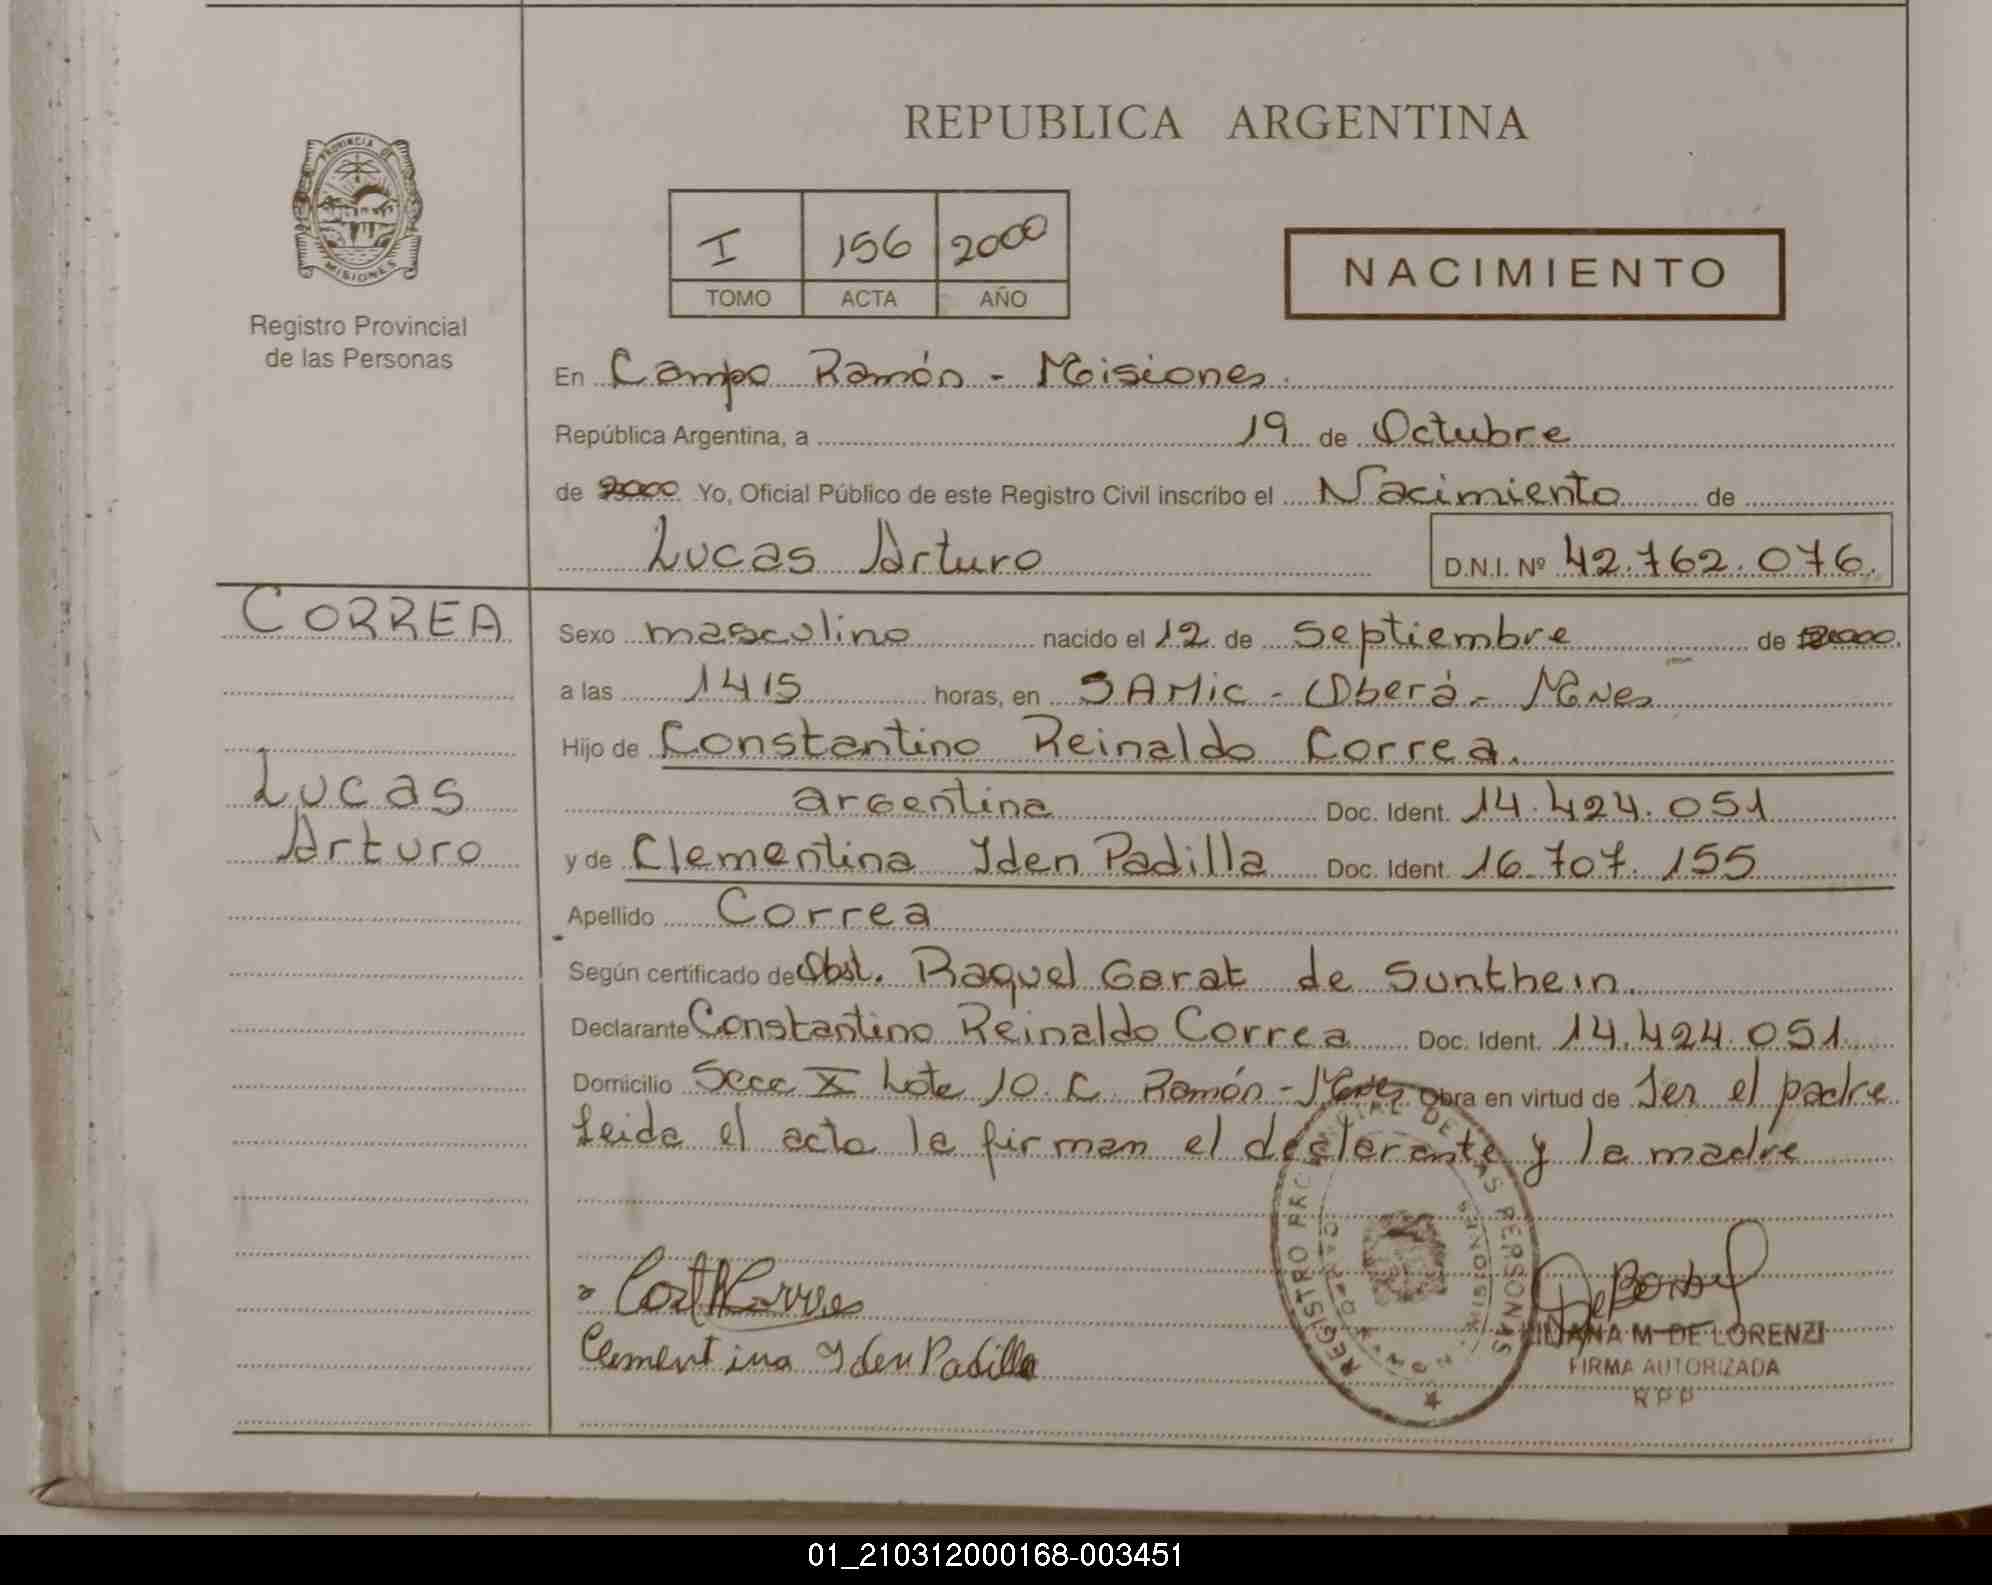 REPUBLICA ARGENTINA
PROVINCIA DE
MISIONES
Registro Provincial
de las Personas
I 156 2000
TOMO ACTA AÑO
NACIMIENTO
En Campo Ramón - Misiones
República Argentina, a 19 de Octubre
de 2000 Yo, Oficial Público de este Registro Civil inscribo el Nacimiento de
Lucas Arturo D.N.I. Nº 42.762.076.
CORREA
Lucas
Arturo
Sexo masculino nacido el 12 de Septiembre de 2000.
a las 1415 horas, en SAMic - Oberá - Mnes
Hijo de Constantino Reinaldo Correa.
argentina Doc. Ident. 14.424.051
y de Clementina Iden Padilla Doc. Ident. 16.707.155
Apellido Correa
Según certificado de Obst. Raquel Garat de Sunthein.
Declarante Constantino Reinaldo Correa Doc. Ident. 14.424.051.
Domicilio Secc X Lote 10. C. Ramón - Mnes Obra en virtud de Ser el padre
Leida el acta la firman el declarante y la madre
Clementina Iden Padilla
REGISTRO PROVINCIAL DE LAS PERSONAS
CAMPO RAMON MISIONES
LILIANA M DE LORENZI
FIRMA AUTORIZADA
R P P
01_210312000168-003451